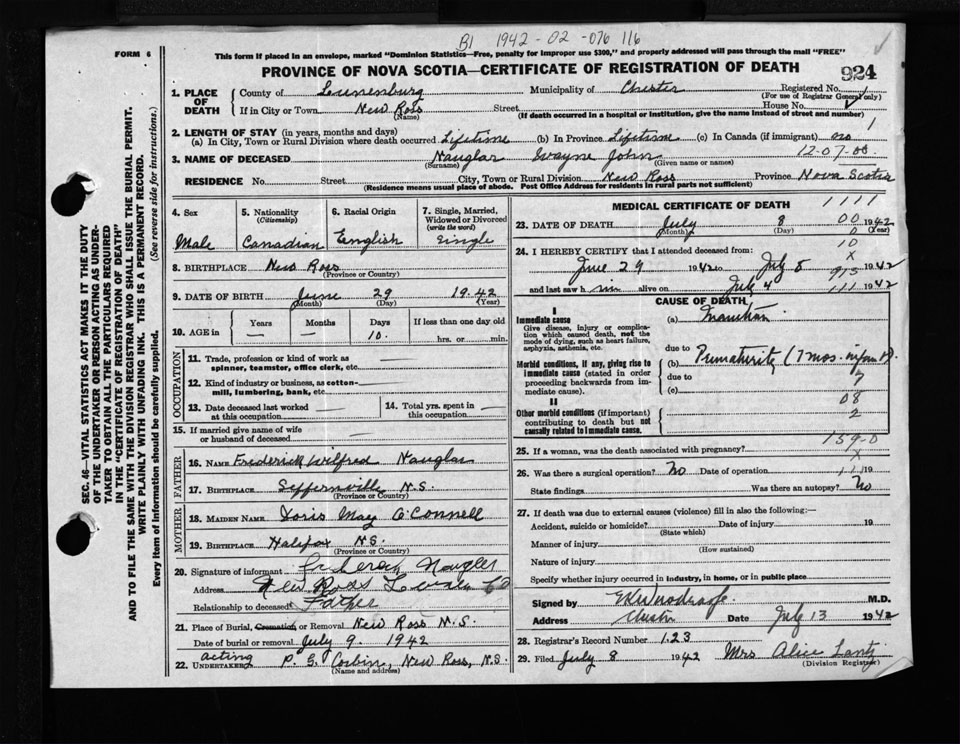 B1 1942-02-076 116
FORM 6
This form if placed in an envelope, marked "Dominion Statistics—Free, penalty for improper use $300," and properly addressed will pass through the mail "FREE"
PROVINCE OF NOVA SCOTIA—CERTIFICATE OF REGISTRATION OF DEATH
924
SEC. 46—VITAL STATISTICS ACT MAKES IT THE DUTY
OF THE UNDERTAKER OR PERSON ACTING AS UNDER-
TAKER TO OBTAIN ALL THE PARTICULARS REQUIRED
IN THE "CERTIFICATE OF REGISTRATION OF DEATH"
AND TO FILE THE SAME WITH THE DIVISION REGISTRAR WHO SHALL ISSUE THE BURIAL PERMIT.
WRITE PLAINLY WITH UNFADING INK. THIS IS A PERMANENT RECORD.
Every item of information should be carefully supplied. (See reverse side for instructions.)
1. PLACE OF DEATH
County of Lunenburg Municipality of Chester Registered No.
(For use of Registrar General only)
If in City or Town New Ross Street House No.
(Name) (If death occurred in a hospital or institution, give the name instead of street and number)
2. LENGTH OF STAY (in years, months and days)
(a) In City, Town or Rural Division where death occurred Lifetime (b) In Province Lifetime (c) In Canada (if immigrant)
3. NAME OF DECEASED Nauglar Wayne John 12-07-00
(Surname) (Given name or names)
RESIDENCE No. Street City, Town or Rural Division New Ross Province Nova Scotia
(Residence means usual place of abode. Post Office Address for residents in rural parts not sufficient)
4. Sex Male
5. Nationality (Citizenship) Canadian
6. Racial Origin English
7. Single, Married, Widowed or Divorced (write the word) Single
8. BIRTHPLACE New Ross
(Province or Country)
9. DATE OF BIRTH June 29 1942
(Month) (Day) (Year)
10. AGE in Years — Months — Days 10. If less than one day old hrs. or min.
OCCUPATION
11. Trade, profession or kind of work as
spinner, teamster, office clerk, etc.
12. Kind of industry or business, as cotton-
mill, lumbering, bank, etc.
13. Date deceased last worked at this occupation
14. Total yrs. spent in this occupation
15. If married give name of wife
or husband of deceased
FATHER
16. NAME Frederick Wilfred Nauglar
17. BIRTHPLACE Seffernville N.S.
(Province or Country)
MOTHER
18. MAIDEN NAME Doris May O'Connell
19. BIRTHPLACE Halifax N.S.
(Province or Country)
20. Signature of informant
Address New Ross
Relationship to deceased Father
21. Place of Burial, Cremation or Removal New Ross N.S.
Date of burial or removal July 9 1942
acting
22. UNDERTAKER P. G. Corbin, New Ross, N.S.
(Name and address)
MEDICAL CERTIFICATE OF DEATH 1111
23. DATE OF DEATH July 8 1942
(Month) (Day) (Year)
24. I HEREBY CERTIFY that I attended deceased from:
June 29 1942 to July 8 1942
and last saw h im alive on July 4 1942
CAUSE OF DEATH
I
Immediate cause (a)
Give disease, injury or complication which caused death, not the mode of dying, such as heart failure, asphyxia, asthenia, etc.
due to
Morbid conditions, if any, giving rise to immediate cause (stated in order proceeding backwards from immediate cause).
(b) Prematurity (7 mos. infant).
due to
(c)
II
Other morbid conditions (if important) contributing to death but not causally related to immediate cause.
08
2
159-0
25. If a woman, was the death associated with pregnancy?
26. Was there a surgical operation? No Date of operation 19
State findings Was there an autopsy? No
27. If death was due to external causes (violence) fill in also the following:—
Accident, suicide or homicide? Date of injury 19
(State which)
Manner of injury
(How sustained)
Nature of injury
Specify whether injury occurred in industry, in home, or in public place
Signed by M.D.
Address Chester Date July 13 1942
28. Registrar's Record Number 123
29. Filed July 8 1942 Mrs Alice Lantz
(Division Registrar)